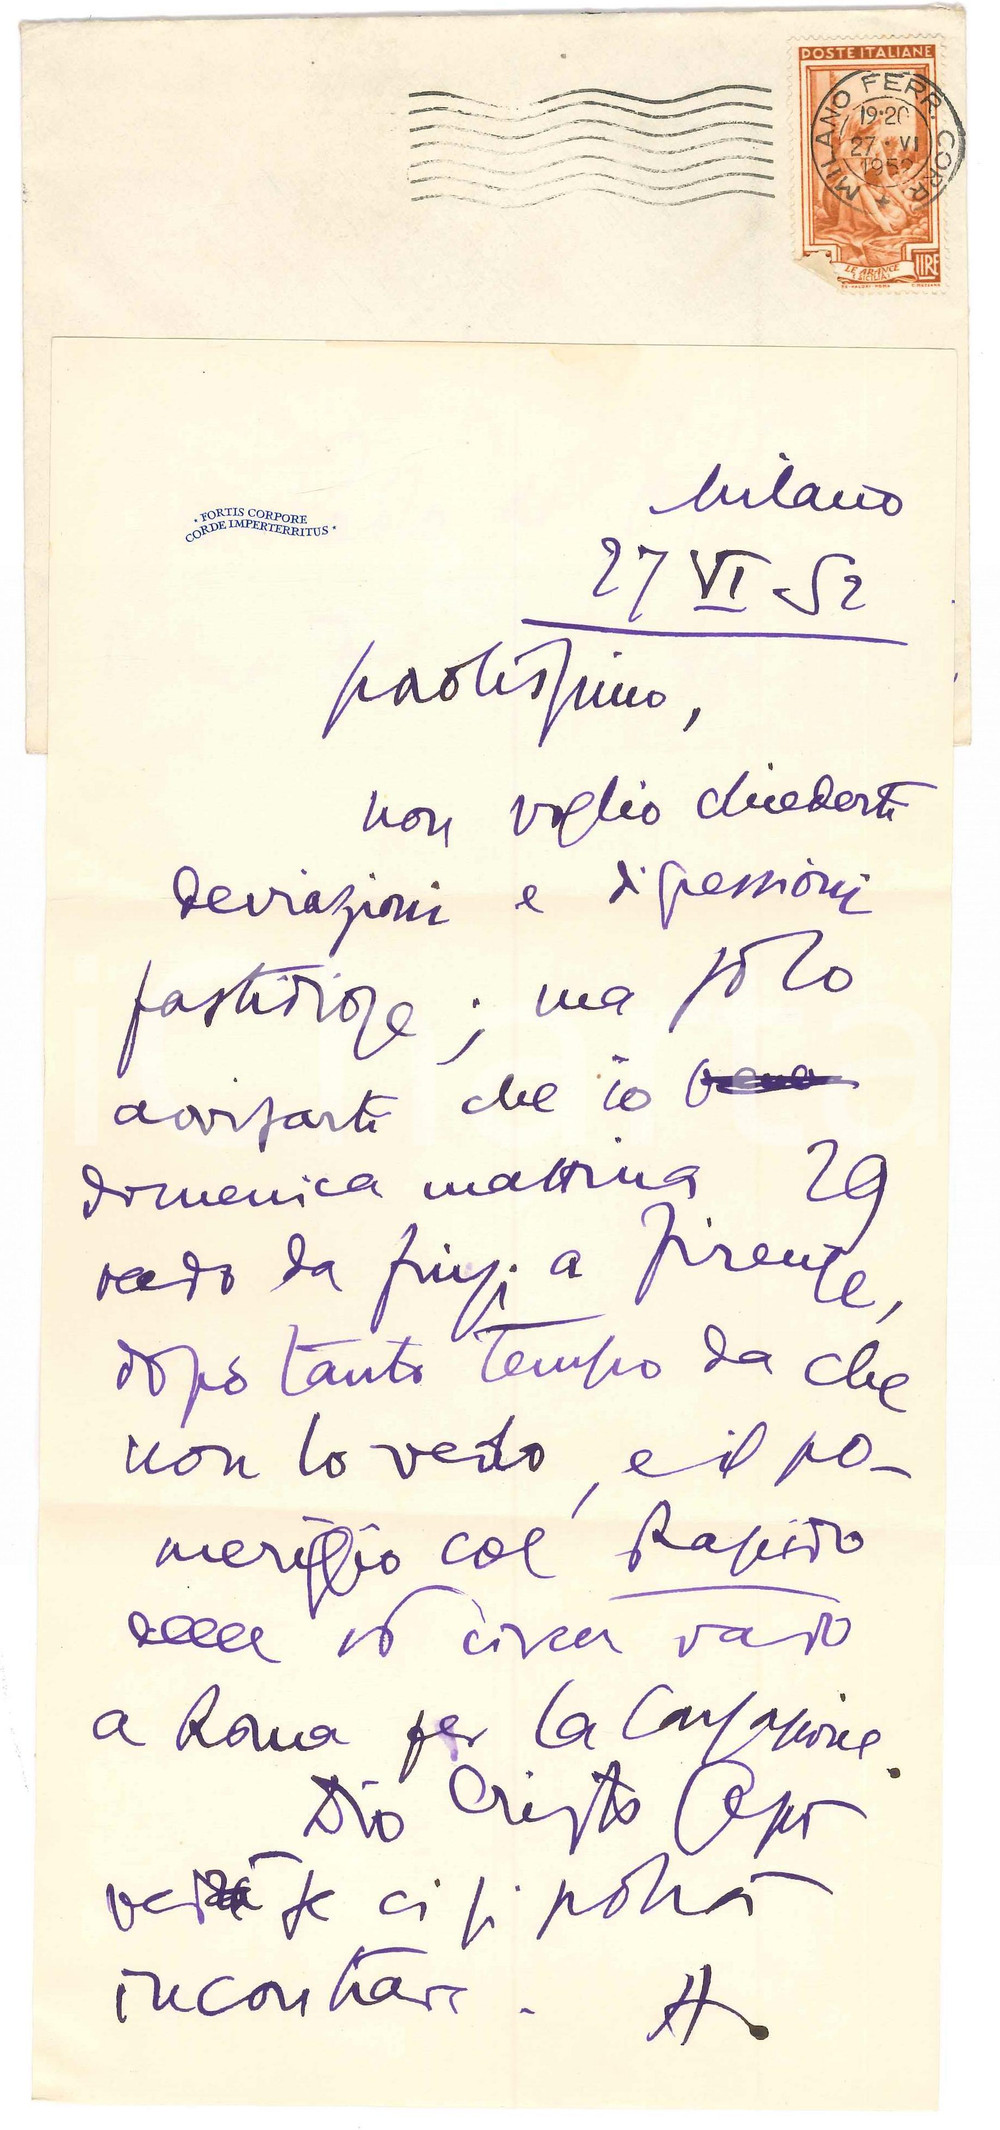 POSTE ITALIANE
MILANO FERR. CORR.
19-20
27 · VI
1952
LE ARANCE
LIRE
· FORTIS CORPORE
CORDE IMPERTERRITUS ·
Milano
27 VI 52
paolissimo,
non voglio chiederti
deviazioni e digressioni
fastidiose; ma solo
avvisarti che io
domenica mattina 29
vado da qui a Firenze,
dopo tanto tempo da che
non lo vedo, e il po-
meriggio col Rapido
delle 16 circa vado
a Roma per la
Dio Cristo
vedrà se ci si potrà
incontrare.